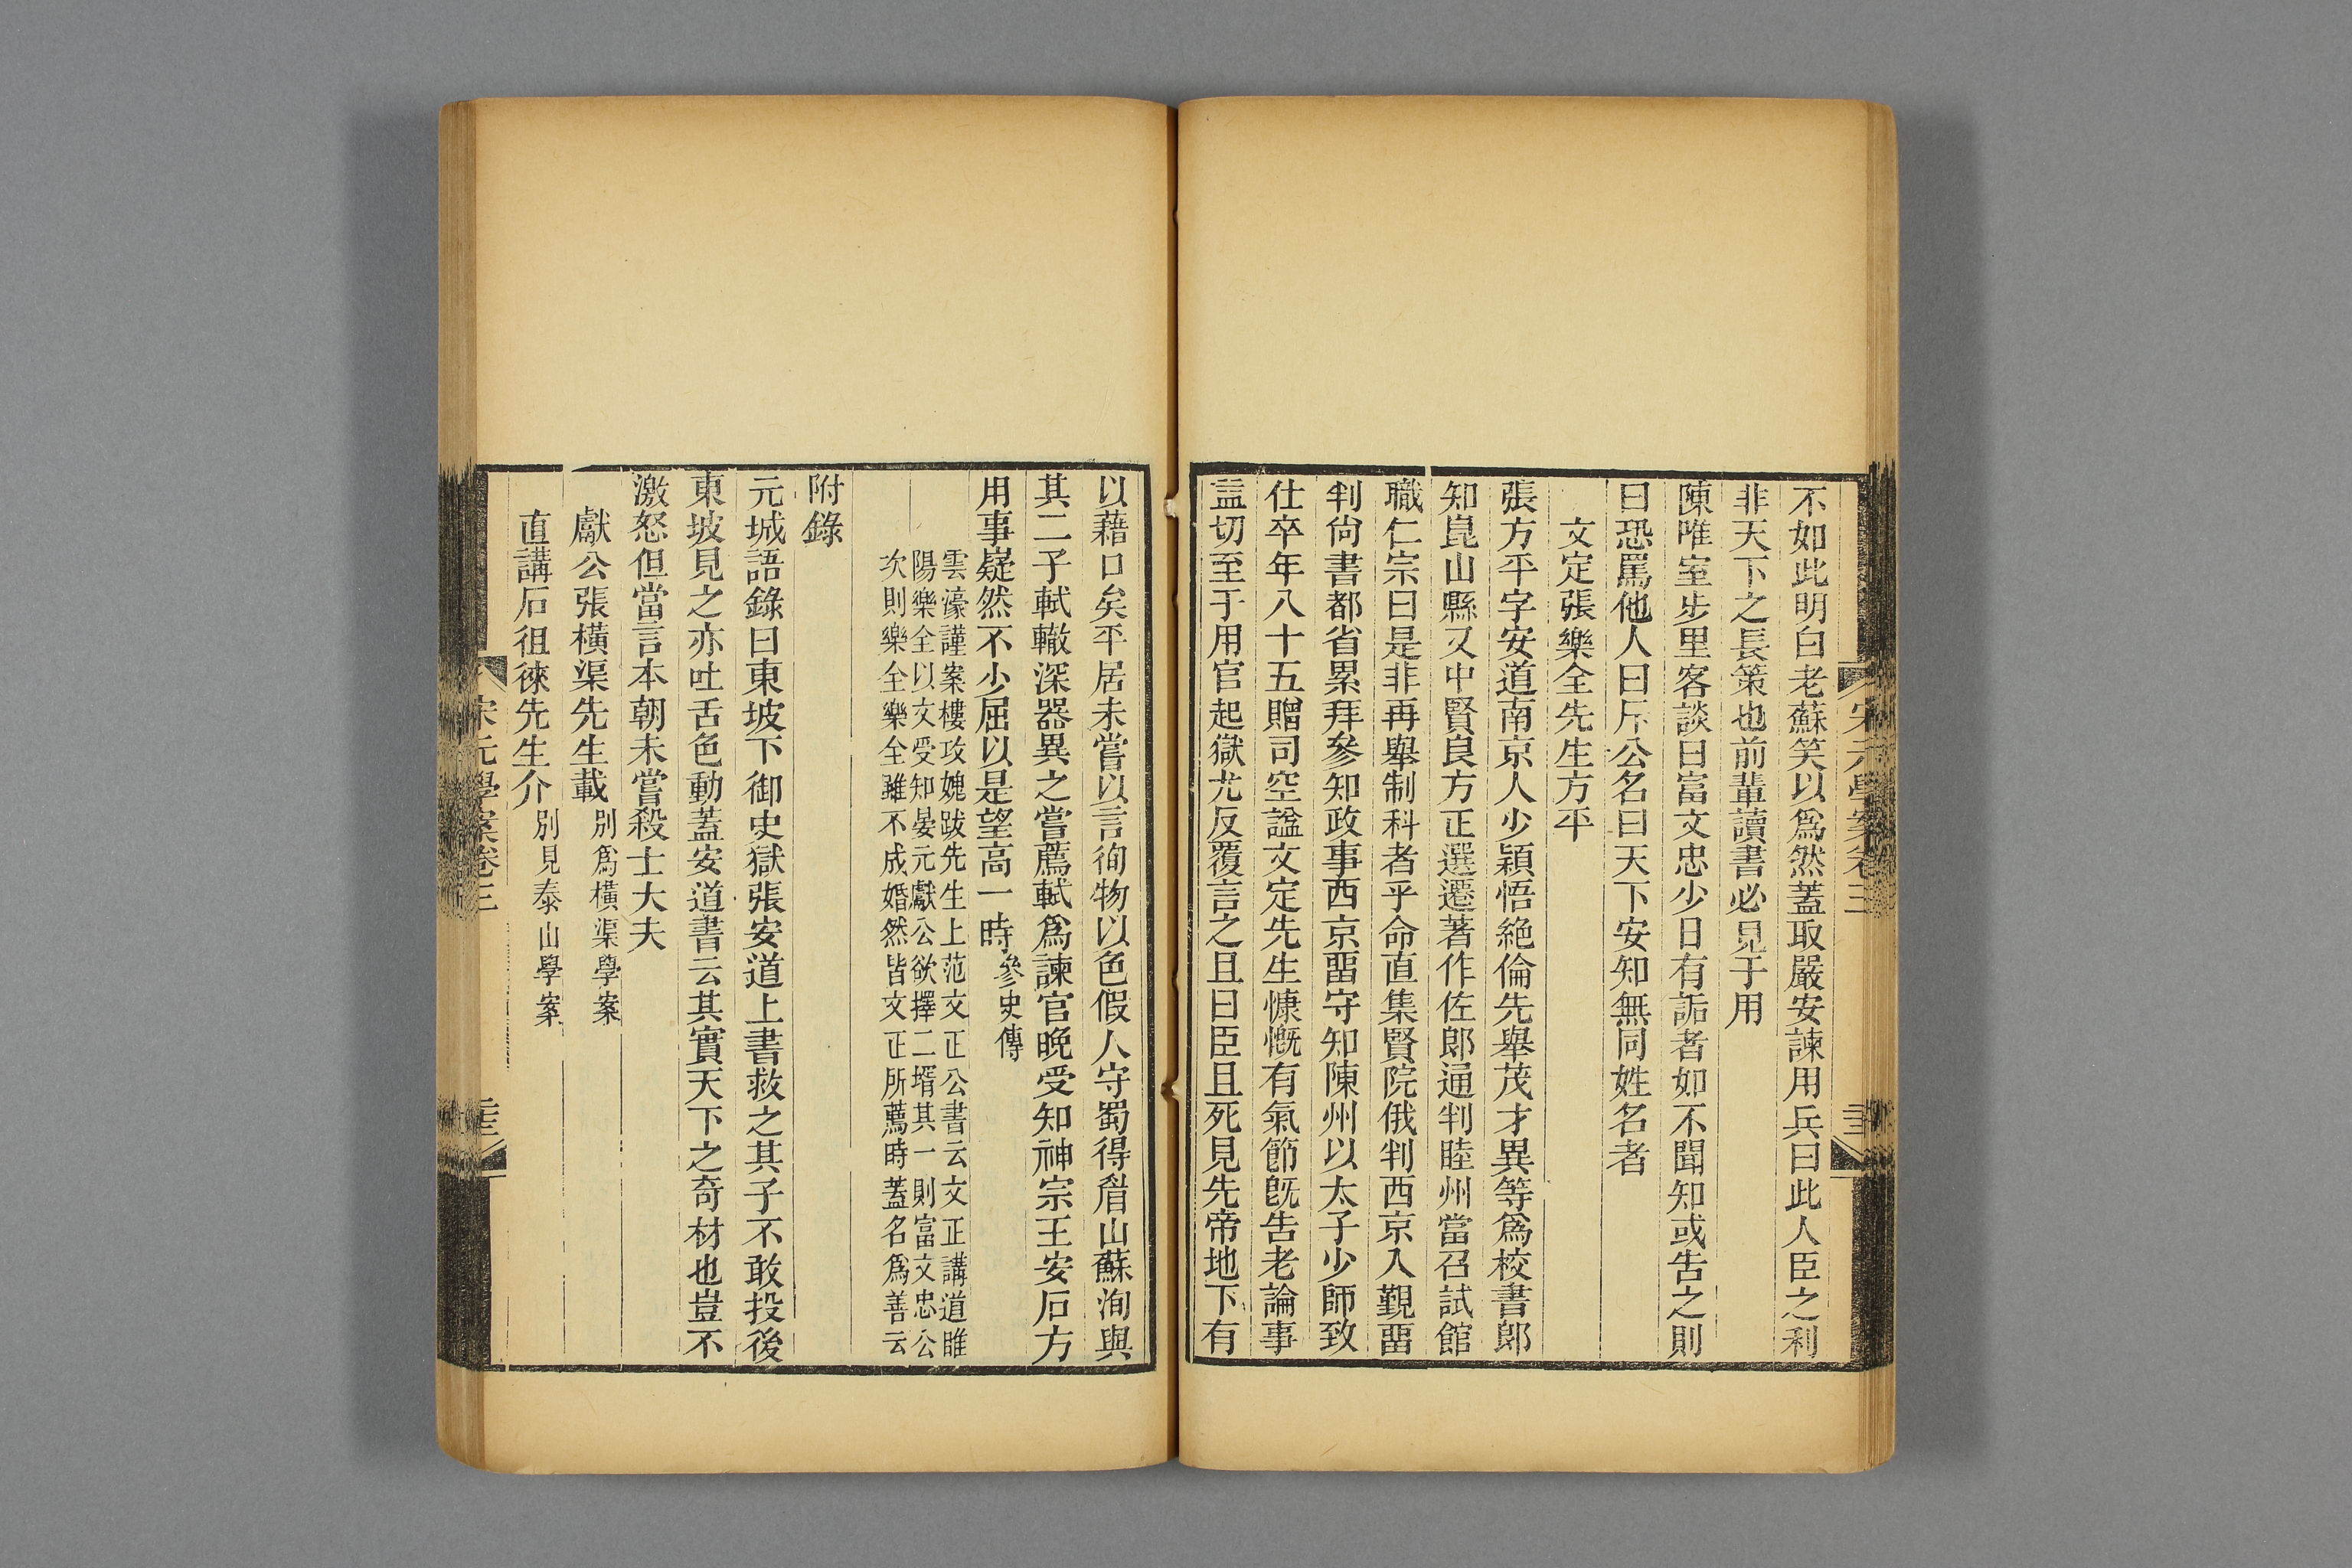 不如此明白老蘇笑以爲然蓋取嚴安諫用兵曰此人臣之利
非天下之長策也前輩讀書必見于用
陳唯室步里客談曰富文忠少日有詬者如不聞知或告之則
曰恐罵他人曰斥公名曰天下安知無同姓名者
文定張樂全先生方平
張方平字安道南京人少穎悟絶倫先舉茂才異等爲校書郎
知崑山縣又中賢良方正選遷著作佐郎通判睦州當召試館
職仁宗曰是非再舉制科者乎命直集賢院俄判西京入覲畱
判尙書都省累拜參知政事西京畱守知陳州以太子少師致
仕卒年八十五贈司空諡文定先生慷慨有氣節旣告老論事
益切至于用官起獄尤反覆言之且曰臣且死見先帝地下有
以藉口矣平居未嘗以言徇物以色假人守蜀得眉山蘇洵與
其二子軾轍深器異之嘗薦軾爲諫官晚受知神宗王安石方
用事嶷然不少屈以是望高一時參史傳
雲濠謹案樓攻媿跋先生上范文正公書云文正講道睢
陽樂全以文受知晏元獻公欲擇二壻其一則富文忠公
次則樂全樂全雖不成婚然皆文正所薦時蓋名爲善云
附錄
元城語錄曰東坡下御史獄張安道上書救之其子不敢投後
東坡見之亦吐舌色動蓋安道書云其實天下之奇材也豈不
激怒但當言本朝未嘗殺士大夫
獻公張橫渠先生載別爲橫渠學案
直講石徂徠先生介別見泰山學案
宋元學案卷三